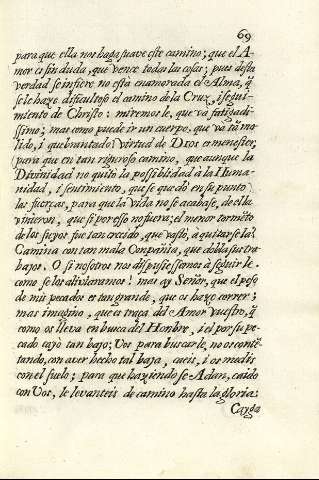 69
para que ella nos haga suave este camino; que el A-
mor es sin duda, que vence todas las cosas; pues desta
verdad se infiere no està enamorada el Alma, q̃
se le haze dificultoso el camino de la Cruz, i segui-
miento de Christo: miremosle, que và fatigadi-
ssimo; mas como puede ir un cuerpo, que và tã mo-
lido, i quebrantado? virtud de Dios es menester,
para que en tan riguroso camino, que aunque la
Divinidad no quitò la possiblidad à la Huma-
nidad, i sentimiento, que se quedò en su punto
las fuerças, para que la vida no se acabase, de ella
vinieron, que si por esso no fuera; el menor tormẽto
de los suyos fue tan crecido, que vastò, à quitarse la?
Camina con tan mala Conpañia, que dobla sus tra-
bajos. O si nosotros nos dispusiessemos à seguir le.
como se los alivianamos! mas ay Señor, que el peso
de mis pecados es tan grande, que os haze correr;
mas imagino, que es traça del Amor vuestro, q̃
como os lleva en busca del Honbre, i èl por su pe-
cado cayò tan bajo; Vos para buscarle, no os contẽ-
tando, con aver hecho tal baja, caeis, i os medis
con el suelo; para que haziendose Adan, caido
con Vos, le levanteis de camino hasta la gloria:
Cayga